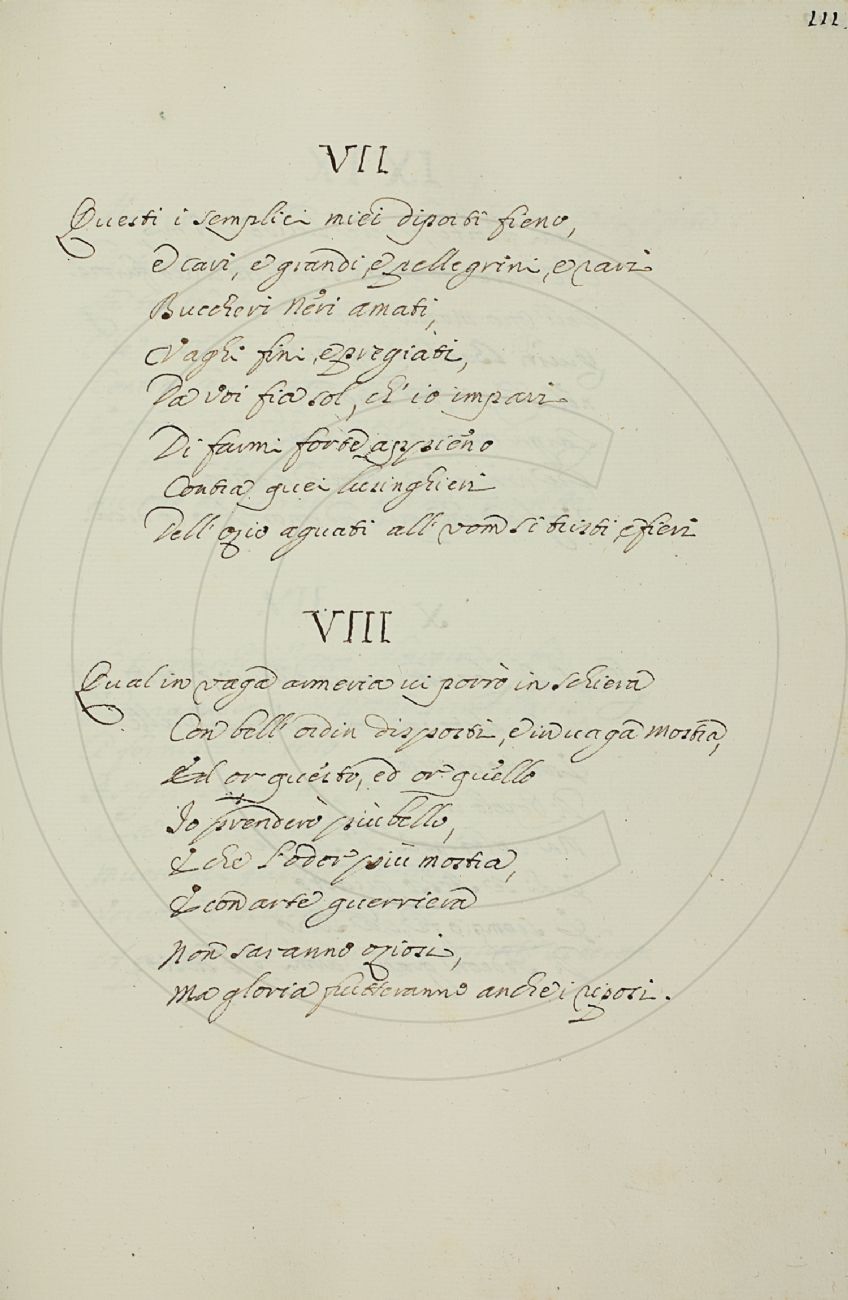 111
VII
Questi i semplici miei diporti fieno,
e cari, e grandi, e pellegrini, e rari
Buccheri Neri amati,
Vaghi fini, e pregiati,
Da voi fia sol, ch' io impari
Di farmi forte appieno
Contra quei lusinghieri
Dell' ozio aguati all' vom sì tristi, e fieri
VIII
Qual in vaga armeria vi porrò in schiera
Con bell' ordin disposti, e in vaga mostra,
Ed or questo, ed or quello
Io prenderò più bello,
E che l'odor più mostra,
E con arte guerriera
Non saranno oziosi,
Ma gloria anche i riposi.